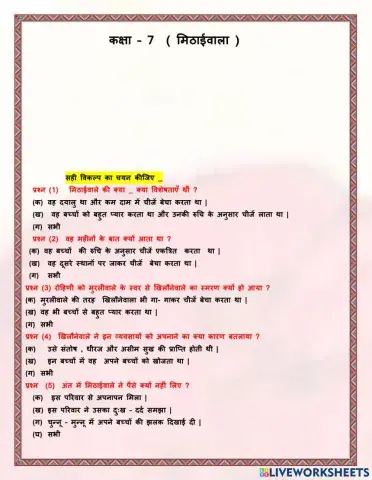 कक्षा - 7 ( मिठाईवाला )
सही विकल्प का चयन कीजिए _
प्रश्न (1) मिठाईवाले की क्या _ क्या विशेषताएँ थीं ?
(क) वह दयालु था और कम दाम में चीजें बेचा करता था |
(ख) वह बच्चों को बहुत प्यार करता था और उनकी रुचि के अनुसार चीजें लाता था |
(ग) सभी
प्रश्न (2) वह महीनों के बात क्यों आता था ?
(क) वह बच्चों की रुचि के अनुसार चीजें एकत्रित करता था |
(ख) वह दूसरे स्थानों पर जाकर चीजें बेचा करता था |
(ग) सभी
प्रश्न (3) रोहिणी को मुरलीवाले के स्वर से खिलौनेवाले का स्मरण क्यों हो आया ?
(क) मुरलीवाले की तरह खिलौनेवाला भी गा- गाकर चीजें बेचा करता था |
(ख) वह भी बच्चों से बहुत प्यार करता था |
(ग) सभी
प्रश्न (4) खिलौनेवाले ने इन व्यवसायों को अपनाने का क्या कारण बतलाया ?
(क) उसे संतोष , धीरज और असीम सुख की प्राप्ति होती थी |
(ख) इन बच्चों में वह अपने बच्चों को खोजता था |
(ग) सभी
प्रश्न (5) अंत में मिठाईवाले ने पैसे क्यों नहीं लिए ?
(क) इस परिवार से अपनापन मिला |
(ख) इस परिवार ने उसका दुःख - दर्द समझा |
(ग) चुन्नू - मुन्नू में अपने बच्चों की झलक दिखाई दी |
(घ) सभी
LIVEWORKSHEETS